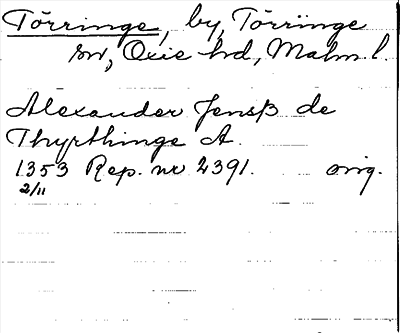 Törringe, by, Törringe
sn, Oxie hd, Malm. l.
Alexander Jensß de
Thyrthinge A.
1353 Rep. nr 2391. orig.
2/11